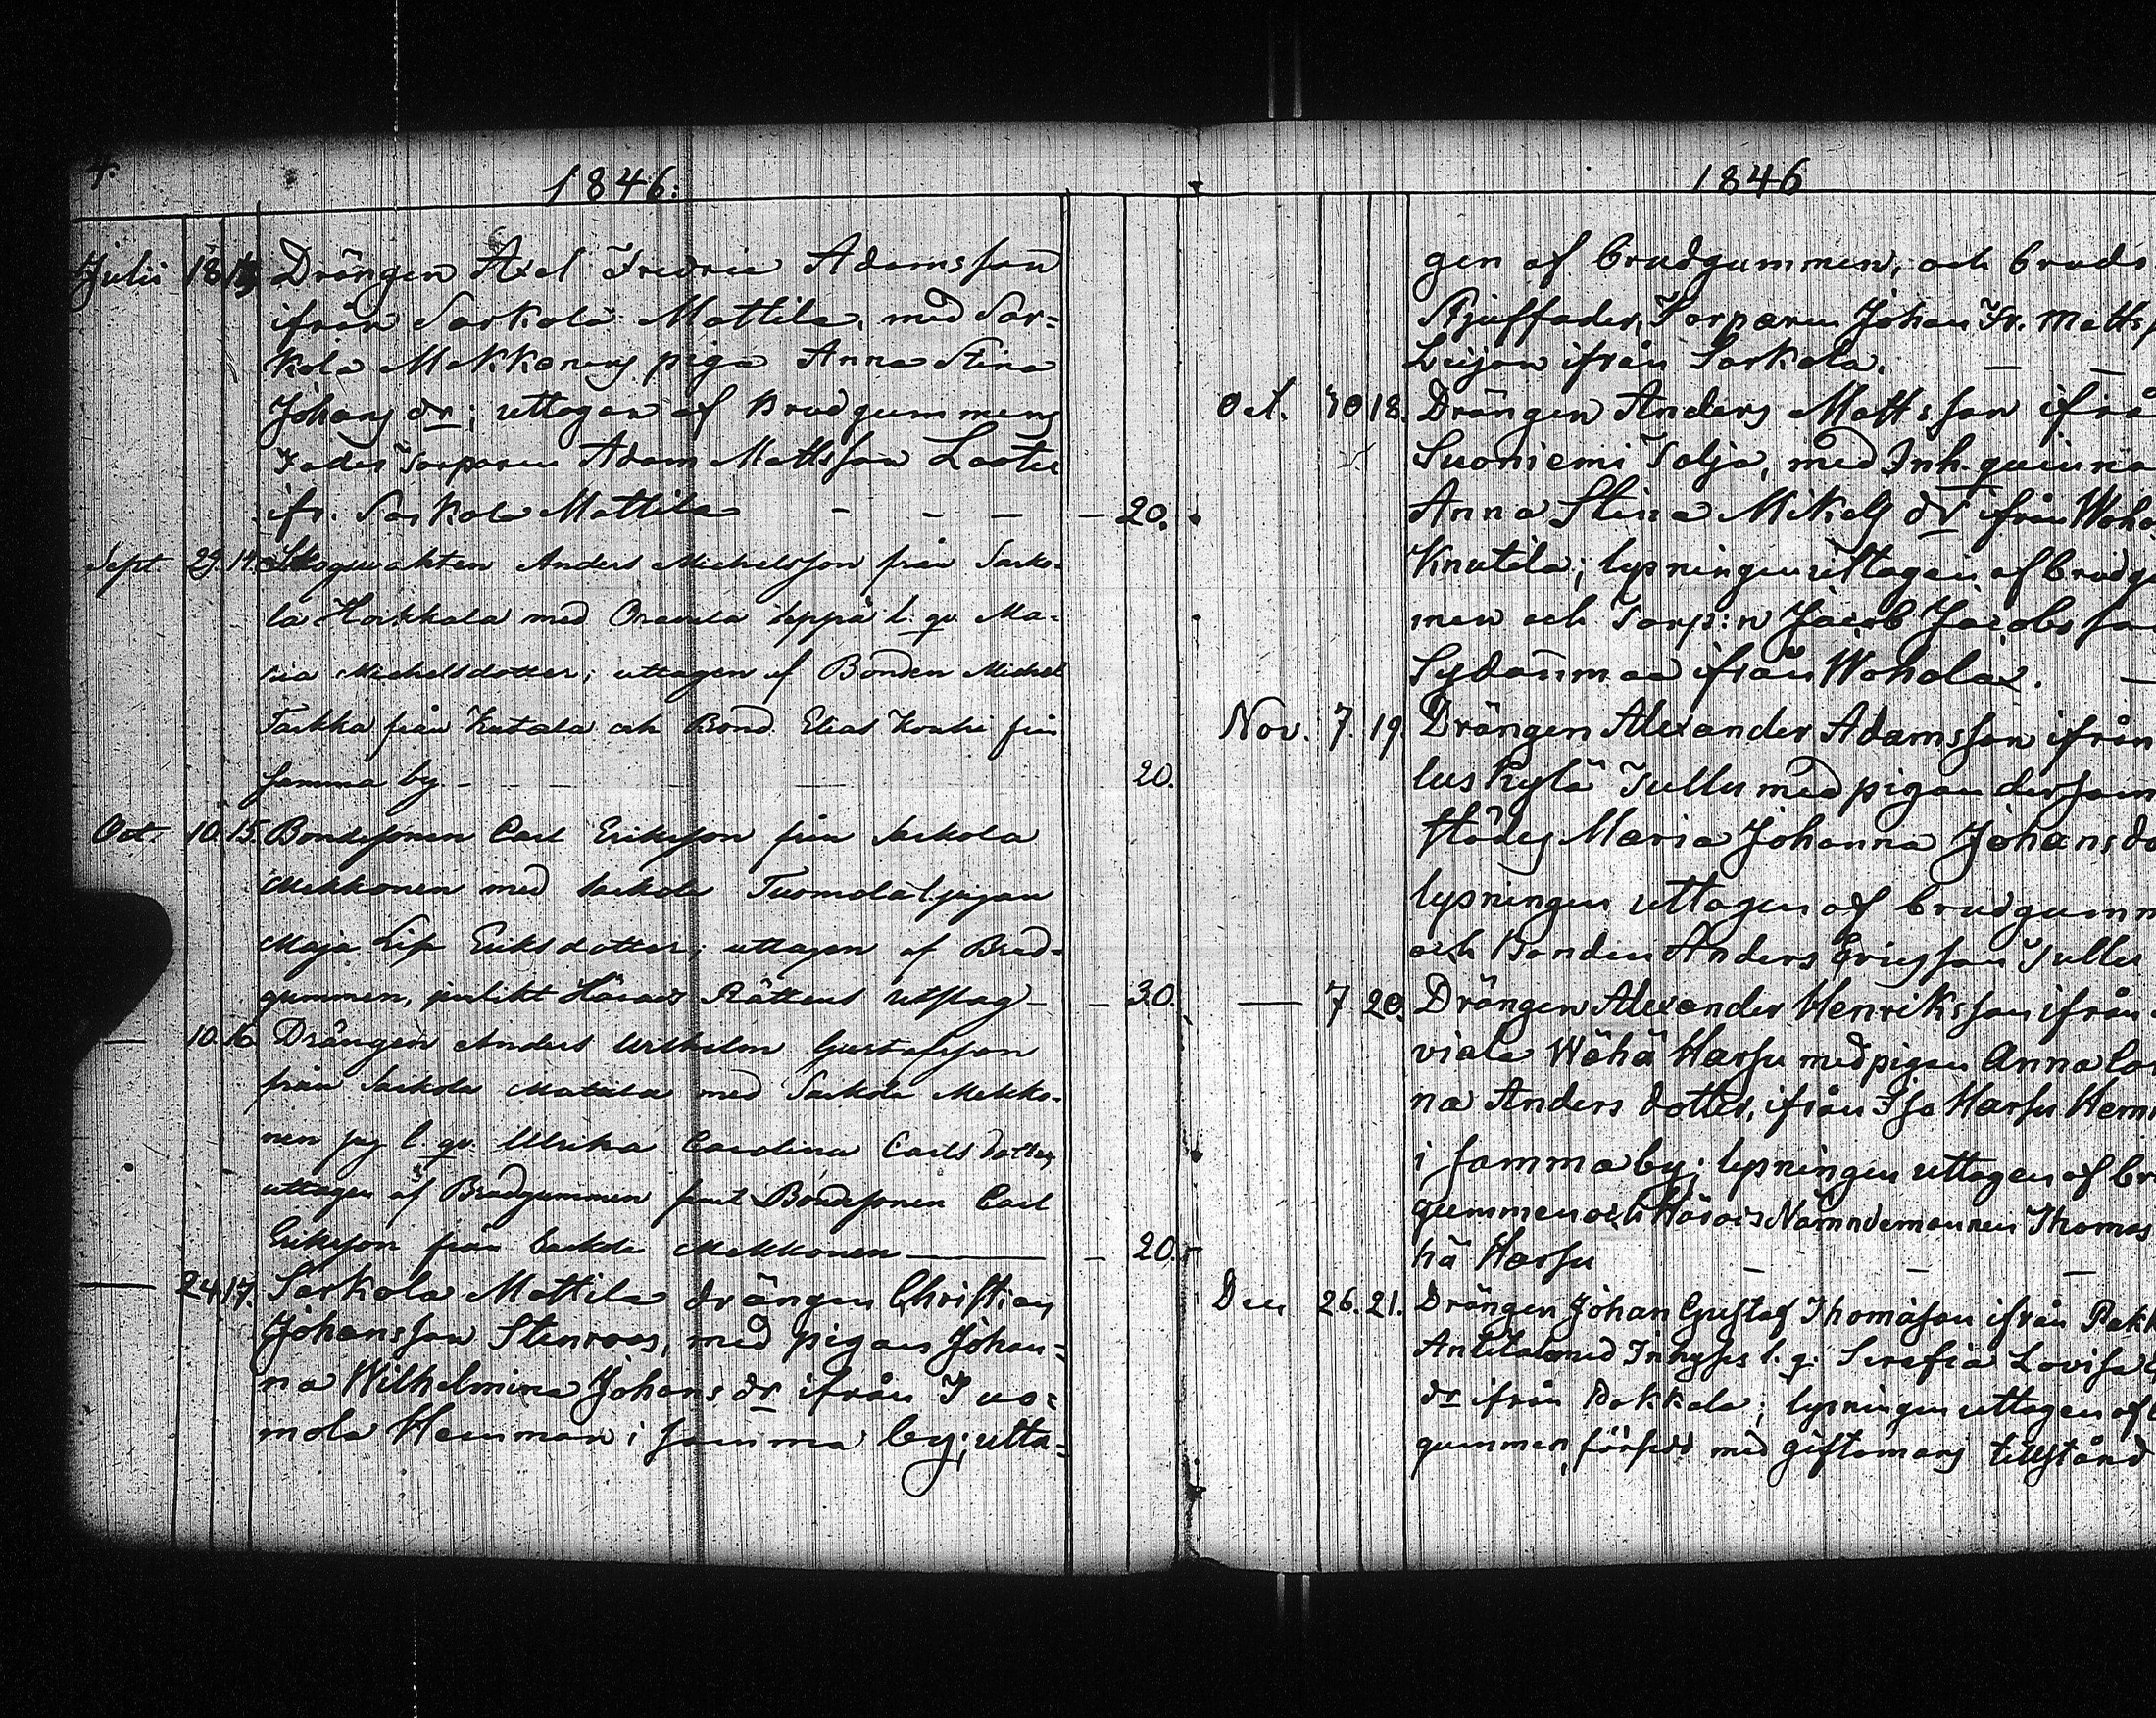 4.
1846.
Julii 18 13 Drängen Axel Fredric Adamsson
ifrån Sarkola Mattila, med Sar=
kola Mekkonens piga Anna Stina
Johans dr; uttagen af Brudgummens
Fader Torparen Adam Mattsson
ifr. Sarkola Mattila - - - - 20.
Sept 29. 14. Skogwakten Anders Michelsson från Sarko-
la Haikkala med l. qv. Ma-
ria Michelsdotter; uttagen af Bonden Michel
Tarkka från Kutala och Bond. Elias från
samma by - 20.
Oct. 10. 15. Bondesonen Carl Eriksson från Sarkola
Mekkonen med Sarkola Tuomola pigan
Maja Lis Eriksdotter; uttagen af Brud-
gummen, jemlikt Härads Rättens utslag - - 30.
— 10. 16. Drängen Anders Wilhelm Gustafsson
från Sarkola Mattila med Sarkola Mekko-
nen l. qv. Ulrika Carolina Carlsdotter,
uttagen af Brudgummen samt Bondesonen Carl
Eriksson från Sarkola Mekkonen — - 20.
— 24. 17. Sarkola Mattila drängen Christian
Johansson Stenroos, med pigan Johan=
na Wilhelmina Johans dr ifrån Tuo=
mola Hemman i samma by; utta=
1846
gen af brudgummen, och bruds
Stjuffader, Torparen Johan Fr. Matts
Leijon ifrån Sarkola. — —
Oct. 30 18. Drängen Anders Mattsson ifrå
Suoniemi Tolja, med Inh. quinna
Anna Stina Mikels dr ifrån Woho
Knutila; lysningen uttagen af brudg
men och Torp:n Jacob Jacobsso
Sydänmaa ifrån Wohola. —
Nov. 7. 19. Drängen Alexander Adamsson ifrån
luskylä Tullu med pigan dersam
städes Maria Johanna Johansdo
lysningen uttagen af brudgumm
och Bonden Anders Ericsson Tullu
— 7 20. Drängen Alexander Henriksson ifrån
viala Wähä Harsu med pigan Anna Ca
na Anders dotter, ifrån Iso Harsu Hem
i samma by; lysningen uttagen af br
gummen och Härads Nämndemannen Thomas
hä Harsu — — —
Dec 26. 21. Drängen Johan Gustaf Thomasson ifrån Pakk
Anttila med Inhyses l. q. Serafia Lovisa
dr ifrån Pakkala; lysningen uttagen af
gummen, försedd med giftomans tillstånd